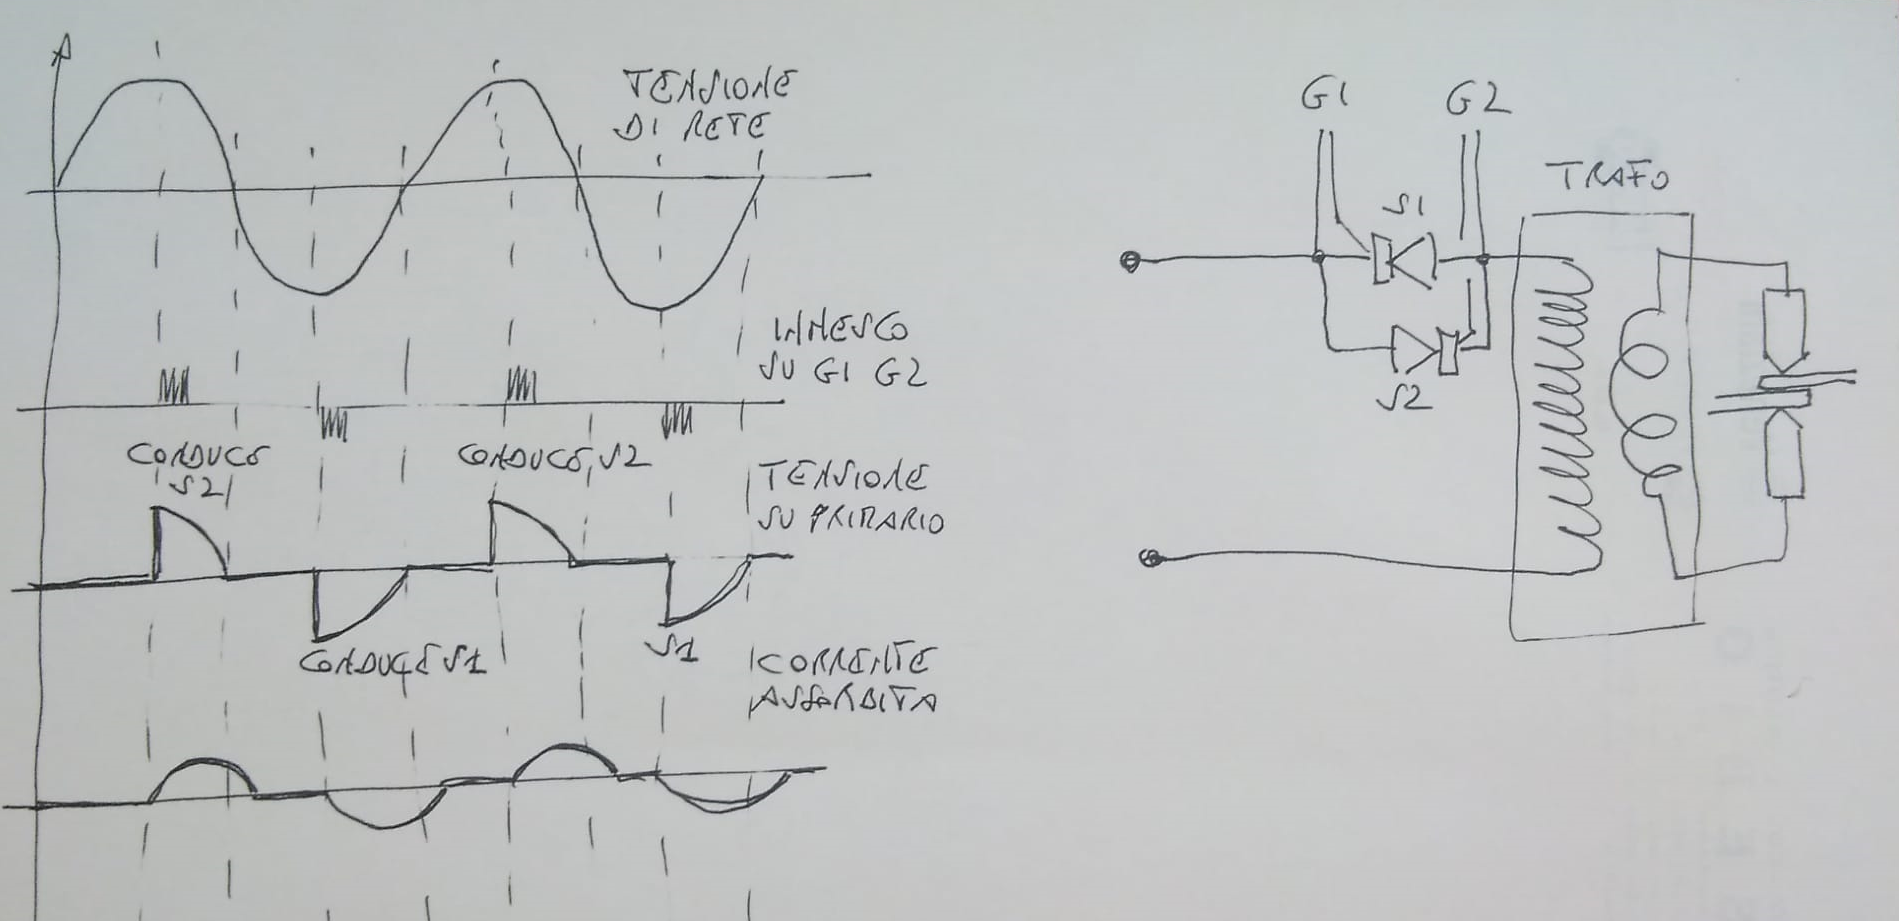 TENSIONE
DI RETE
INNESCO
SU G1 G2
CONDUCE
S2
CONDUCE S2
TENSIONE
SU PRIMARIO
CONDUCE S1
S1
CORRENTE
ASSORBITA
G1 G2
TRAFO
S1
S2